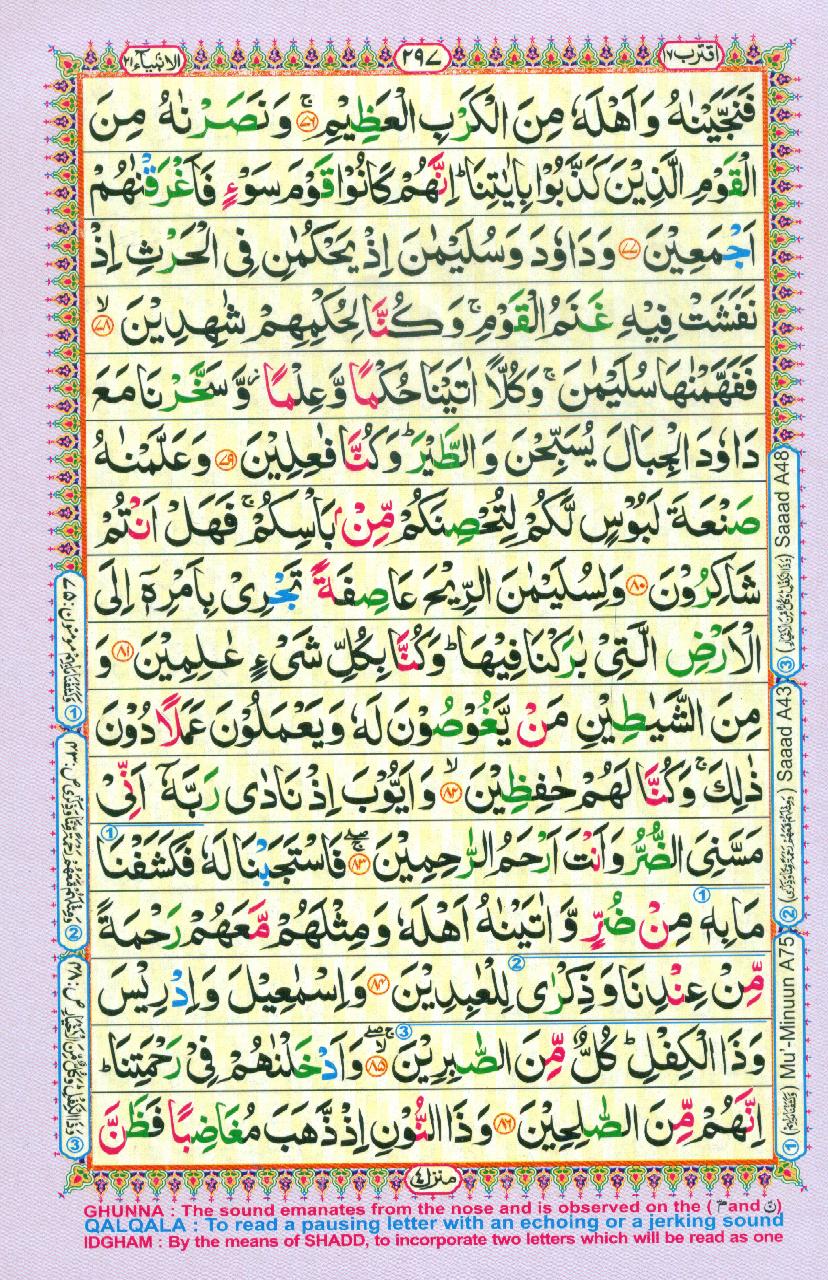 اقترب ١٧
٢٩٧
الانبیآء ٢١
فَنَجَّيْنٰهُ وَاَهْلَهٗ مِنَ الْكَرْبِ الْعَظِيْمِ ۚ ﴿٧٦﴾ وَنَصَرْنٰهُ مِنَ
الْقَوْمِ الَّذِيْنَ كَذَّبُوْا بِاٰيٰتِنَا ؕ اِنَّهُمْ كَانُوْا قَوْمَ سَوْءٍ فَاَغْرَقْنٰهُمْ
اَجْمَعِيْنَ ﴿٧٧﴾ وَدَاوٗدَ وَسُلَيْمٰنَ اِذْ يَحْكُمٰنِ فِى الْحَرْثِ اِذْ
نَفَشَتْ فِيْهِ غَنَمُ الْقَوْمِ ۚ وَكُنَّا لِحُكْمِهِمْ شٰهِدِيْنَ ۙ ﴿٧٨﴾
فَفَهَّمْنٰهَا سُلَيْمٰنَ ۚ وَكُلًّا اٰتَيْنَا حُكْمًا وَّعِلْمًا ؗ وَّسَخَّرْنَا مَعَ
دَاوٗدَ الْجِبَالَ يُسَبِّحْنَ وَالطَّيْرَ ؕ وَكُنَّا فٰعِلِيْنَ ﴿٧٩﴾ وَعَلَّمْنٰهُ
صَنْعَةَ لَبُوْسٍ لَّكُمْ لِتُحْصِنَكُمْ مِّنْۢ بَاْسِكُمْ ۚ فَهَلْ اَنْتُمْ
شَاكِرُوْنَ ﴿٨٠﴾ وَلِسُلَيْمٰنَ الرِّيْحَ عَاصِفَةً تَجْرِىْ بِاَمْرِهٖۤ اِلَى
الْاَرْضِ الَّتِىْ بٰرَكْنَا فِيْهَا ؕ وَكُنَّا بِكُلِّ شَىْءٍ عٰلِمِيْنَ ﴿٨١﴾ وَ
مِنَ الشَّيٰطِيْنِ مَنْ يَّغُوْصُوْنَ لَهٗ وَيَعْمَلُوْنَ عَمَلًا دُوْنَ
ذٰلِكَ ۚ وَكُنَّا لَهُمْ حٰفِظِيْنَ ۙ ﴿٨٢﴾ وَاَيُّوْبَ اِذْ نَادٰى رَبَّهٗۤ اَنِّىْ
مَسَّنِىَ الضُّرُّ وَاَنْتَ اَرْحَمُ الرّٰحِمِيْنَ ۚۖ ﴿٨٣﴾ فَاسْتَجَبْنَا لَهٗ فَكَشَفْنَا
مَا بِهٖ مِنْ ضُرٍّ وَّاٰتَيْنٰهُ اَهْلَهٗ وَمِثْلَهُمْ مَّعَهُمْ رَحْمَةً
مِّنْ عِنْدِنَا وَذِكْرٰى لِلْعٰبِدِيْنَ ﴿٨٤﴾ وَاِسْمٰعِيْلَ وَاِدْرِيْسَ
وَذَا الْكِفْلِ ؕ كُلٌّ مِّنَ الصّٰبِرِيْنَ ۚۖ ﴿٨٥﴾ وَاَدْخَلْنٰهُمْ فِىْ رَحْمَتِنَا ؕ
اِنَّهُمْ مِّنَ الصّٰلِحِيْنَ ﴿٨٦﴾ وَذَا النُّوْنِ اِذْ ذَّهَبَ مُغَاضِبًا فَظَنَّ
منزل ٤
① Mu'-Minuun A75
② Saaad A43
③ Saaad A48
GHUNNA : The sound emanates from the nose and is observed on the ( مّ and نّ )
QALQALA : To read a pausing letter with an echoing or a jerking sound
IDGHAM : By the means of SHADD, to incorporate two letters which will be read as one